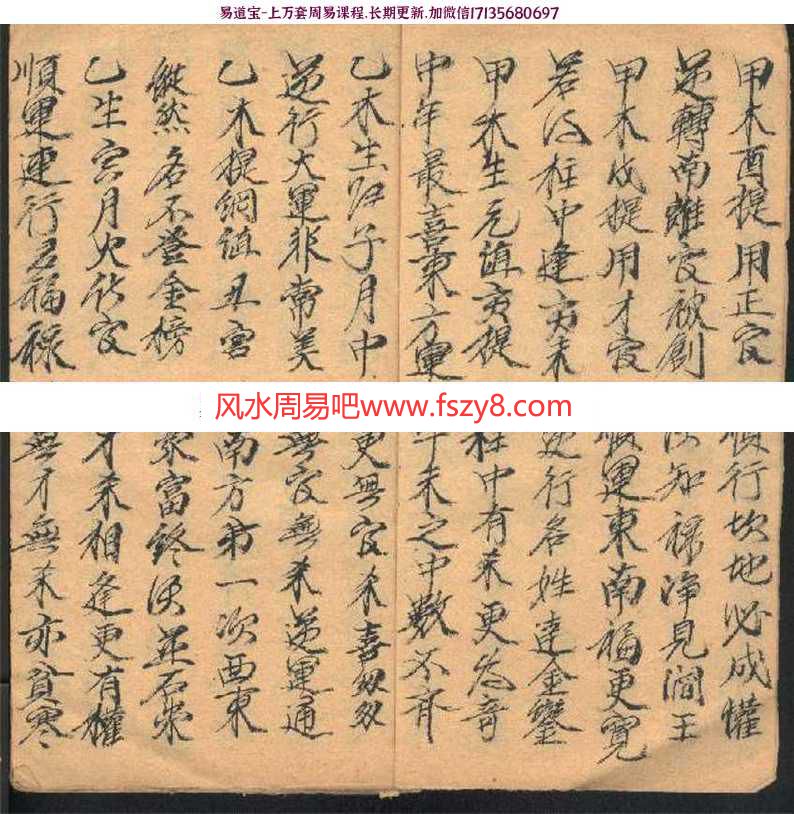 易道宝-上万套周易课程.长期更新.加微信17135680697
甲木酉提用正官順行坎地必成權
逆轉南離官被創須知祿淨見閻王
甲木戌提用才官順運東南福更寬
若得柱中逢亥未逆行名姓達金鑾
甲木生元值亥提柱中有未更為奇
中年最喜東方運午未之中數不齊
乙木生臨子月中更無官杀喜匆匆
逆行大運非常美無官無杀逆運通
乙木提綱值丑宮南方第一次西東
縱然名不登金榜家富終須並石崇
乙生寅月火化官才杀相逢更有權
順運逆行君福祿無才無杀亦貧寒
风水周易吧www.fszy8.com